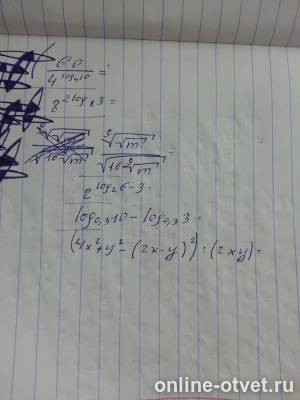 60 / 4^log₄10 =
8^2log₈3 =
2^log₂6-3 =
log₀,₃10 - log₀,₃3 =
(4x²+y²-(2x-y)²):(2xy)=
online-otvet.ru